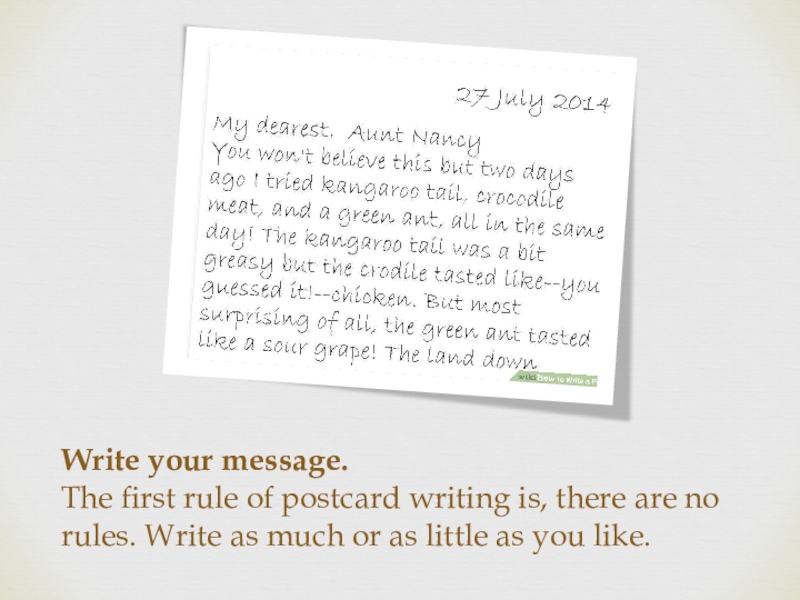 27 July 2014
My dearest. Aunt Nancy
You won't believe this but two days
ago I tried kangaroo tail, crocodile
meat, and a green ant, all in the same
day! The kangaroo tail was a bit
greasy but the crodile tasted like--you
guessed it!--chicken. But most
surprising of all, the green ant tasted
like a sour grape! The land down
wiki How to Write a P
Write your message.
The first rule of postcard writing is, there are no
rules. Write as much or as little as you like.